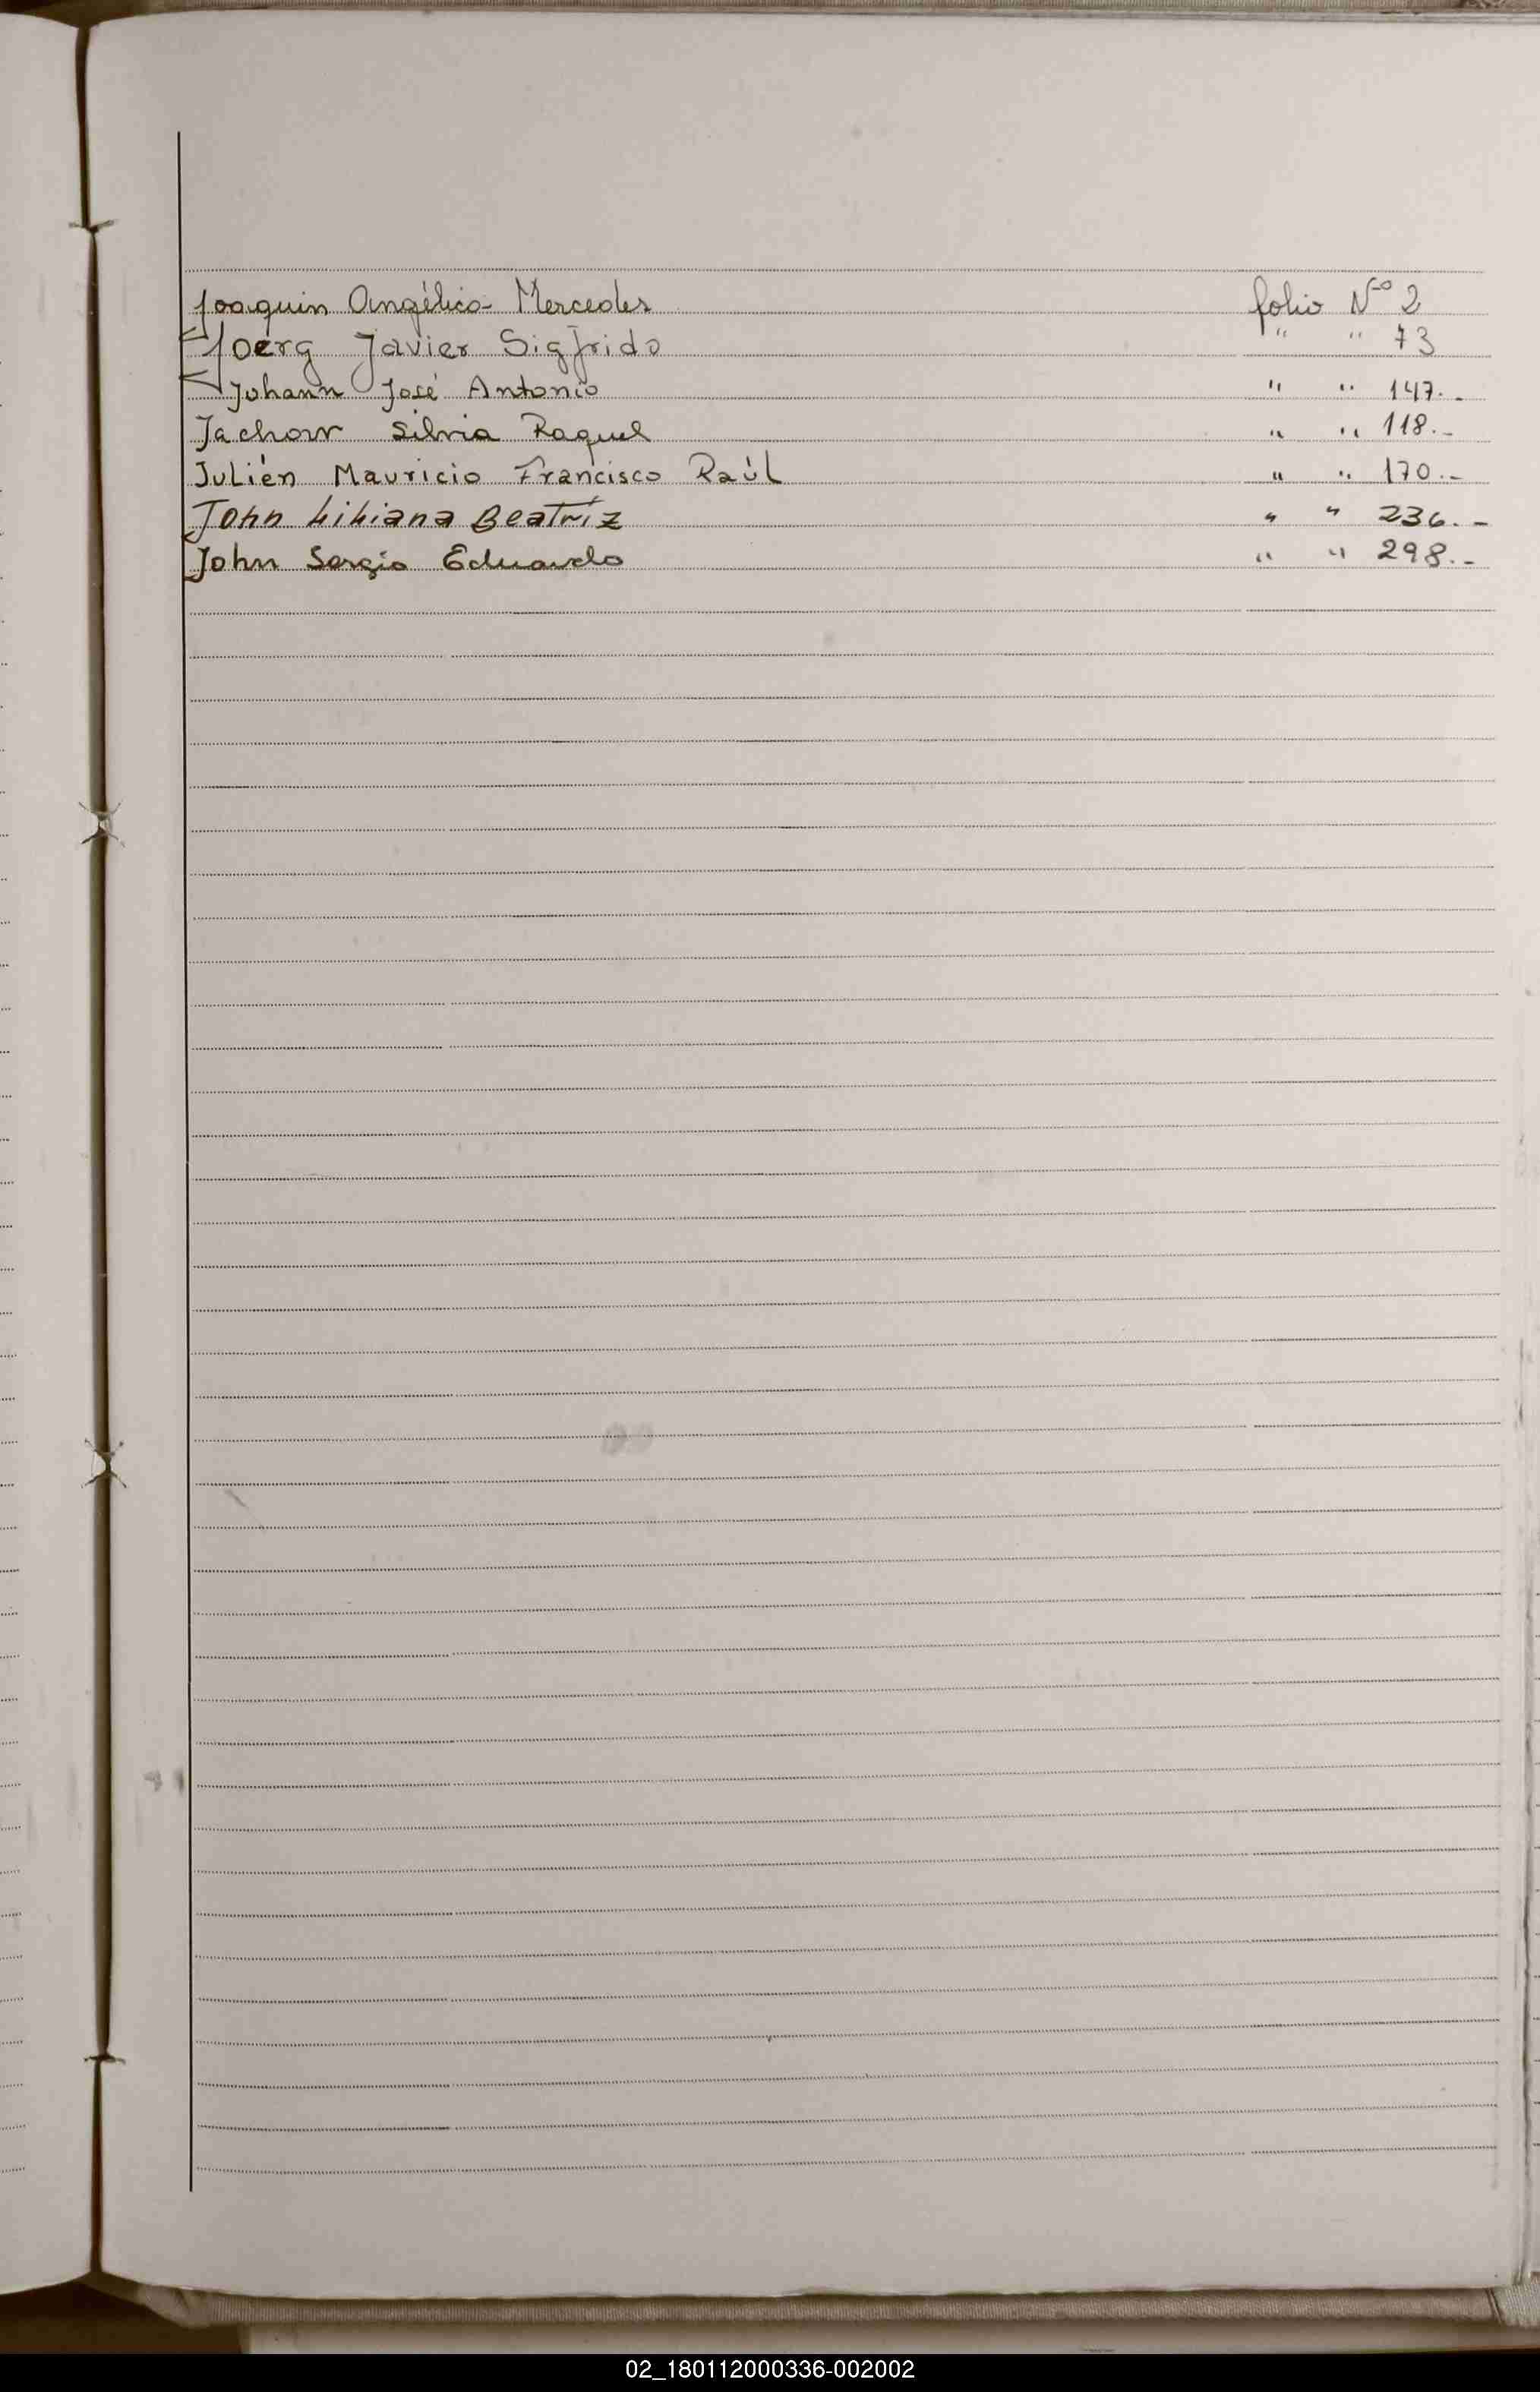 Joaquin Angélica Mercedes folio Nº 2
Joerg Javier Sigfrido " " 73
Johann José Antonio " " 147.-
Jachow Silvia Raquel " " 118.-
Julién Mauricio Francisco Raúl " " 170.-
John Liliana Beatríz " " 236.-
John Sergio Eduardo " " 298.-
02_180112000336-002002